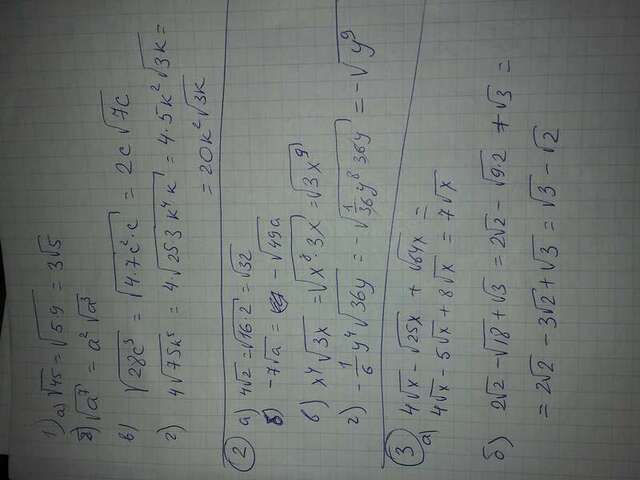 1) а) √45 = √5·9 = 3√5
б) √a⁷ = a² √a³
в) √28c³ = √4·7c²·c = 2c √7c
г) 4√75k⁵ = 4·√25 3 k⁴ k = 4·5k² √3k =
= 20k² √3k
2 а) 4√2 = √16·2 = √32
б) -7√a = -√49a
в) x⁴ √3x = √x⁸·3x = √3x⁹
г) -1/6 y⁴ √36y = -√1/36 y⁸ 36y = -√y⁹
3 а) 4√x - √25x + √64x =
4√x - 5√x + 8√x = 7√x
б) 2√2 - √18 + √3 = 2√2 - √9·2 + √3 =
= 2√2 - 3√2 + √3 = √3 - √2